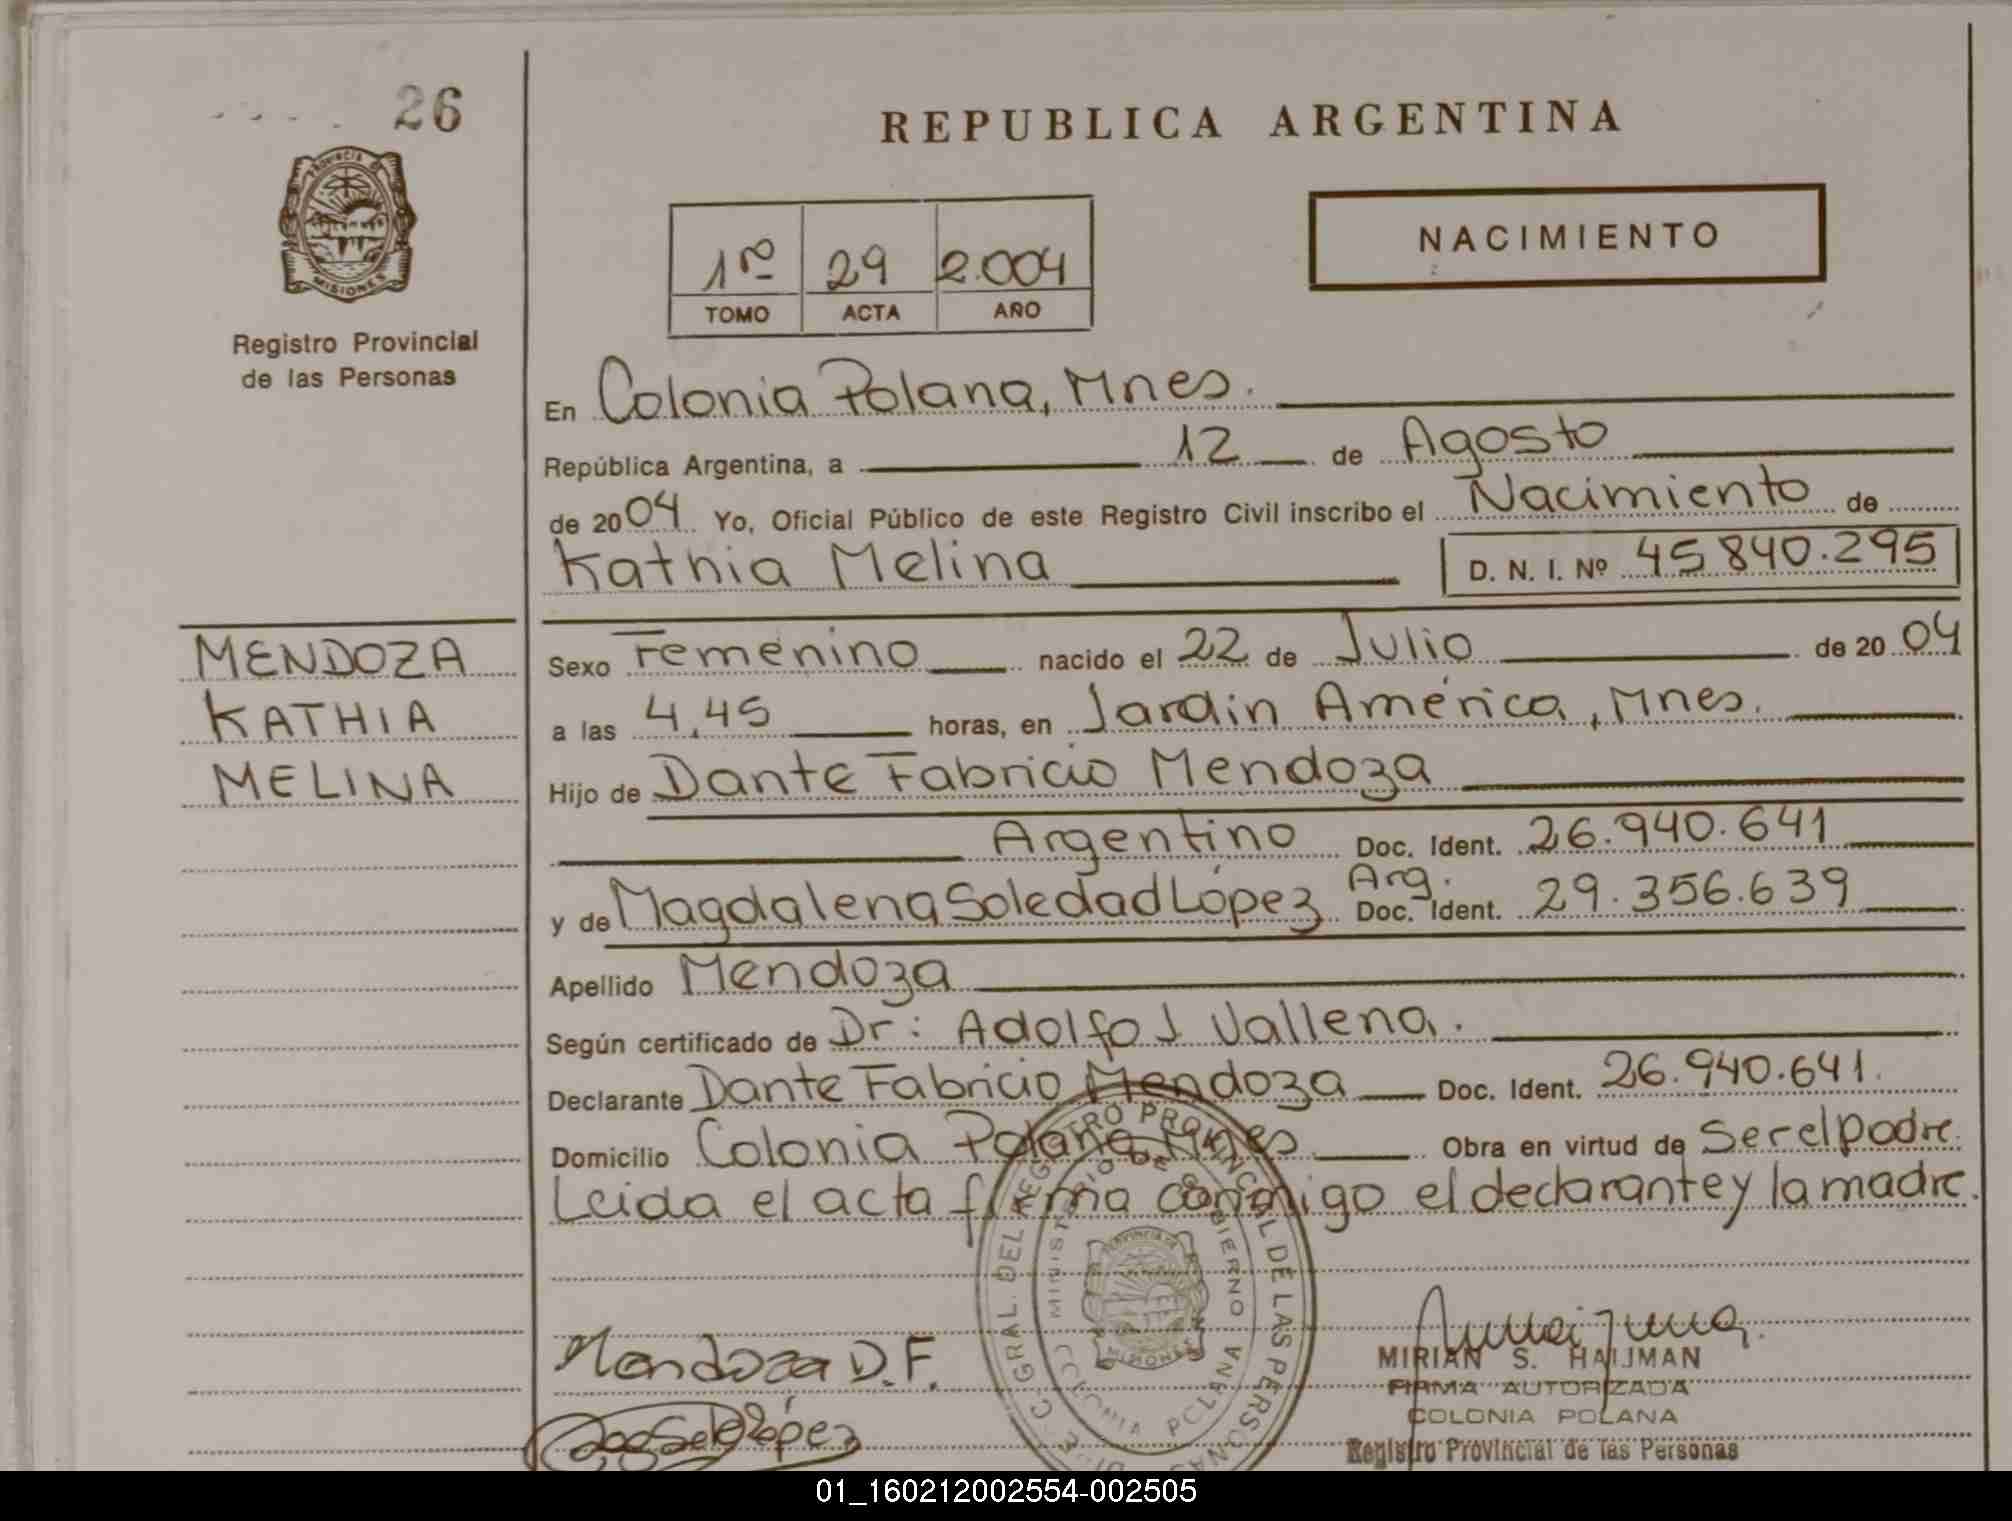 26
REPUBLICA ARGENTINA
PROVINCIA DE
MISIONES
Registro Provincial
de las Personas
NACIMIENTO
1º 29 2.004
TOMO ACTA AÑO
En Colonia Polana, Mnes.
República Argentina, a 12 de Agosto
de 2004 Yo, Oficial Público de este Registro Civil inscribo el Nacimiento de
Kathia Melina D. N. I. Nº 45 840.295
MENDOZA
KATHIA
MELINA
Sexo Femenino nacido el 22 de Julio de 2004
a las 4,45 horas, en Jardín América, Mnes.
Hijo de Dante Fabricio Mendoza
Argentino Doc. Ident. 26.940.641
y de Magdalena Soledad López Arg. Doc. Ident. 29.356.639
Apellido Mendoza
Según certificado de Dr: Adolfo J Vallena.
Declarante Dante Fabricio Mendoza Doc. Ident. 26.940.641.
Domicilio Colonia Polana Mnes Obra en virtud de Ser el padre.
Leida el acta firma conmigo el declarante y la madre.
GRAL. DEL REGISTRO PROVINCIAL DE LAS PERSONAS
MINISTERIO DE GOBIERNO
COLONIA POLANA
PROVINCIA DE
MISIONES
Mendoza D.F.
López
MIRIAN S. HAIJMAN
FIRMA AUTORIZADA
COLONIA POLANA
Registro Provincial de las Personas
01_160212002554-002505